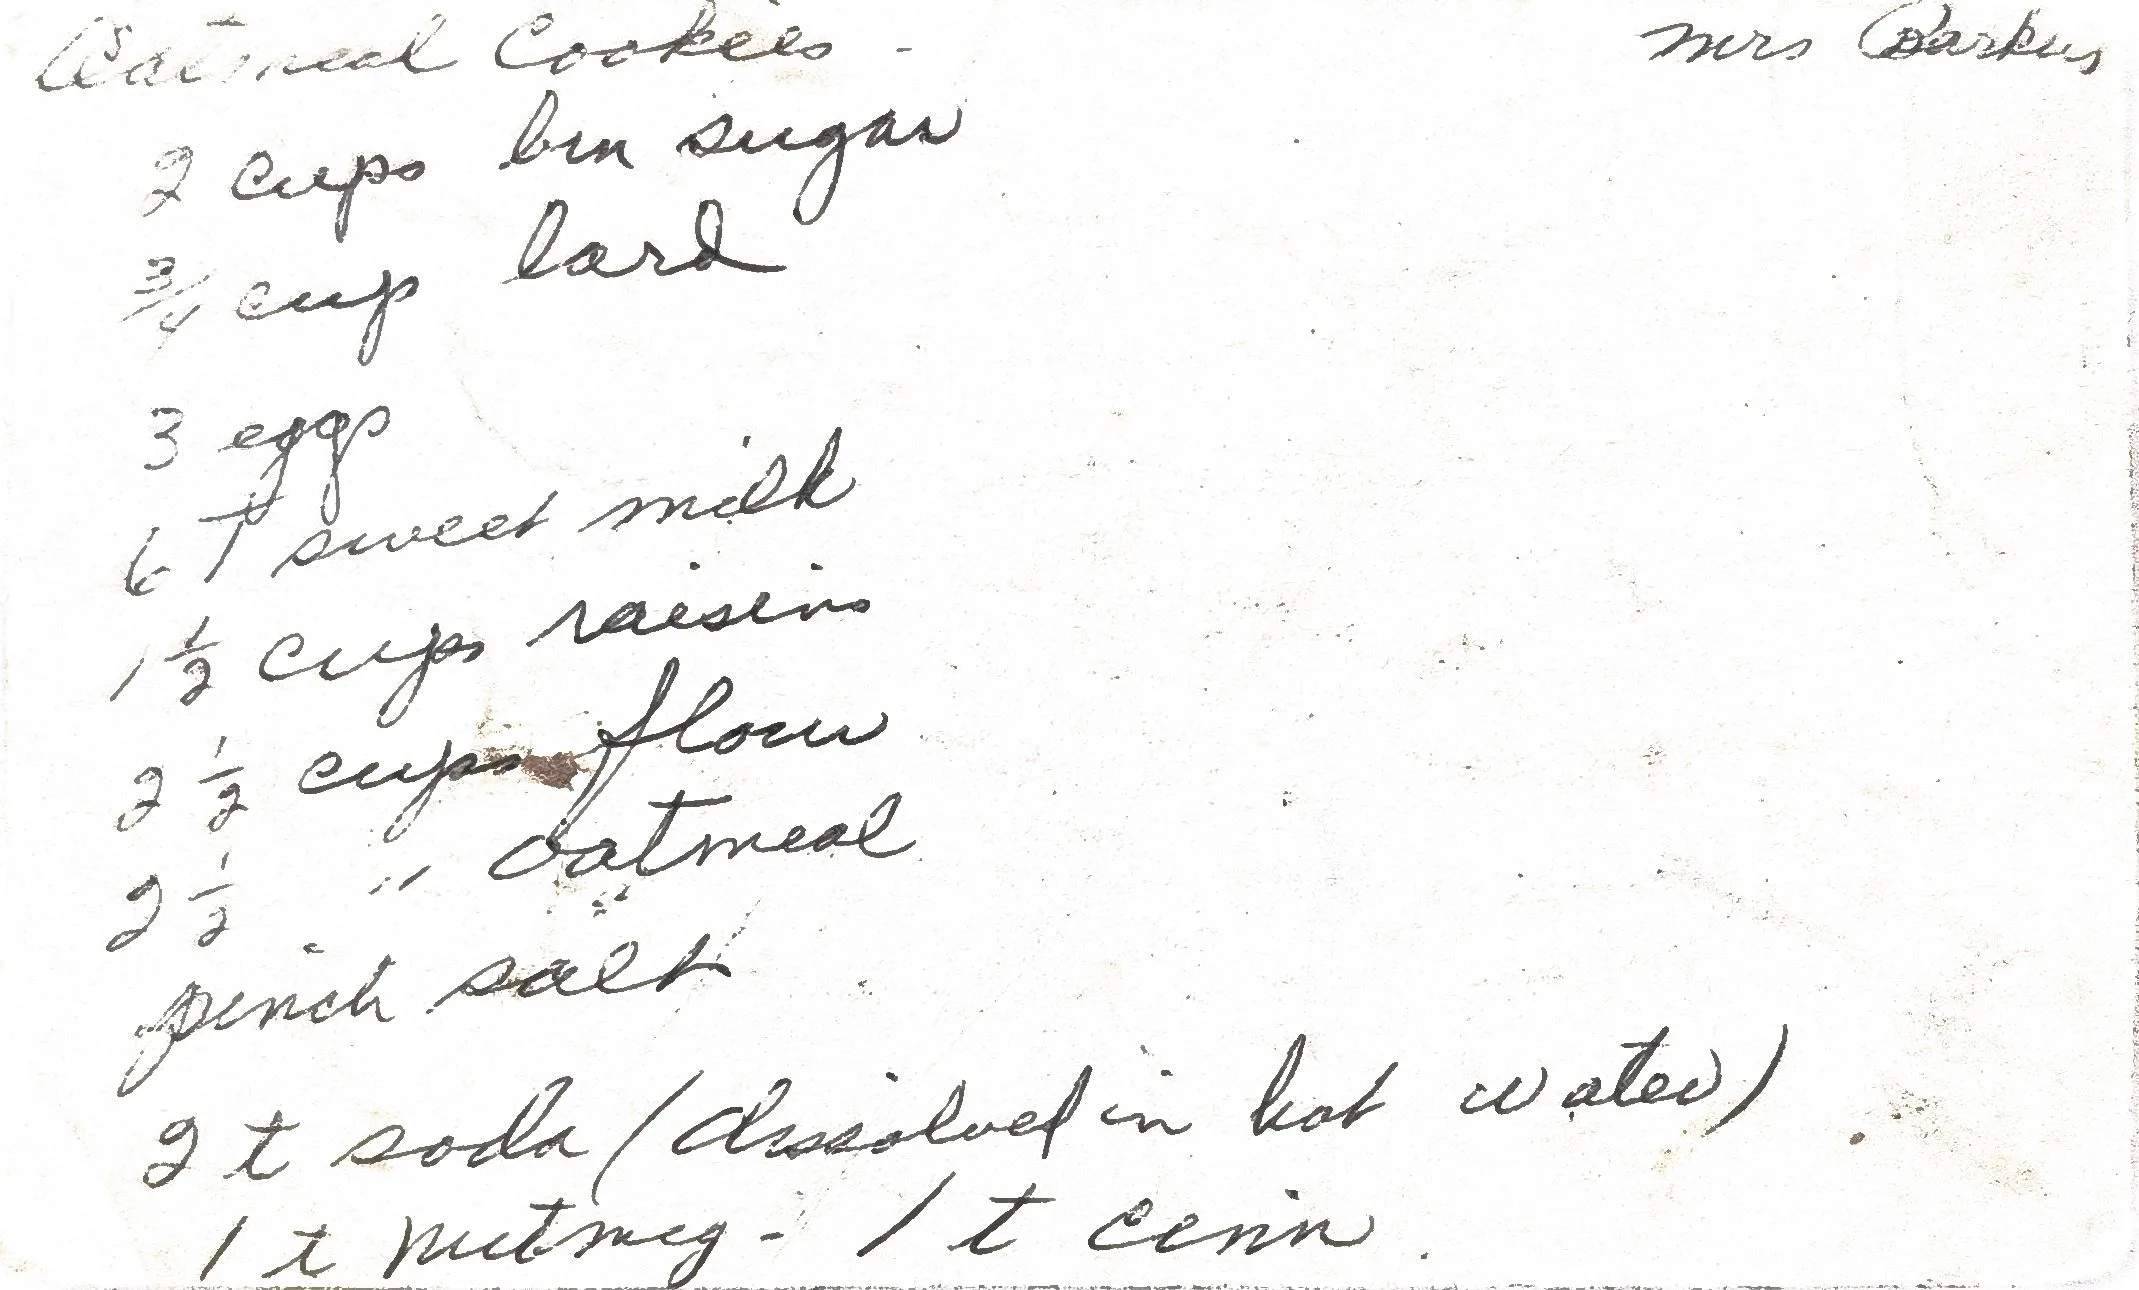 Oatmeal Cookies - Mrs Barkus
2 cups brn sugar
3/4 cup lard
3 eggs
6 T sweet milk
1 1/2 cups raisins
2 1/2 cups flour
2 1/2 " oatmeal
pinch salt
2 t soda (dissolved in hot water)
1 t nutmeg - 1 t cinn.